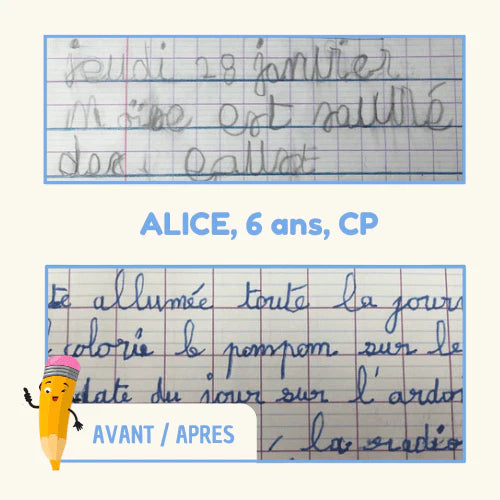 jeudi 28 janvier
Moïse est sauvé
des
ALICE, 6 ans, CP
té allumée toute la journ
colorie le pompom sur le
date du jour sur l'ardoi
AVANT / APRES
, la radio